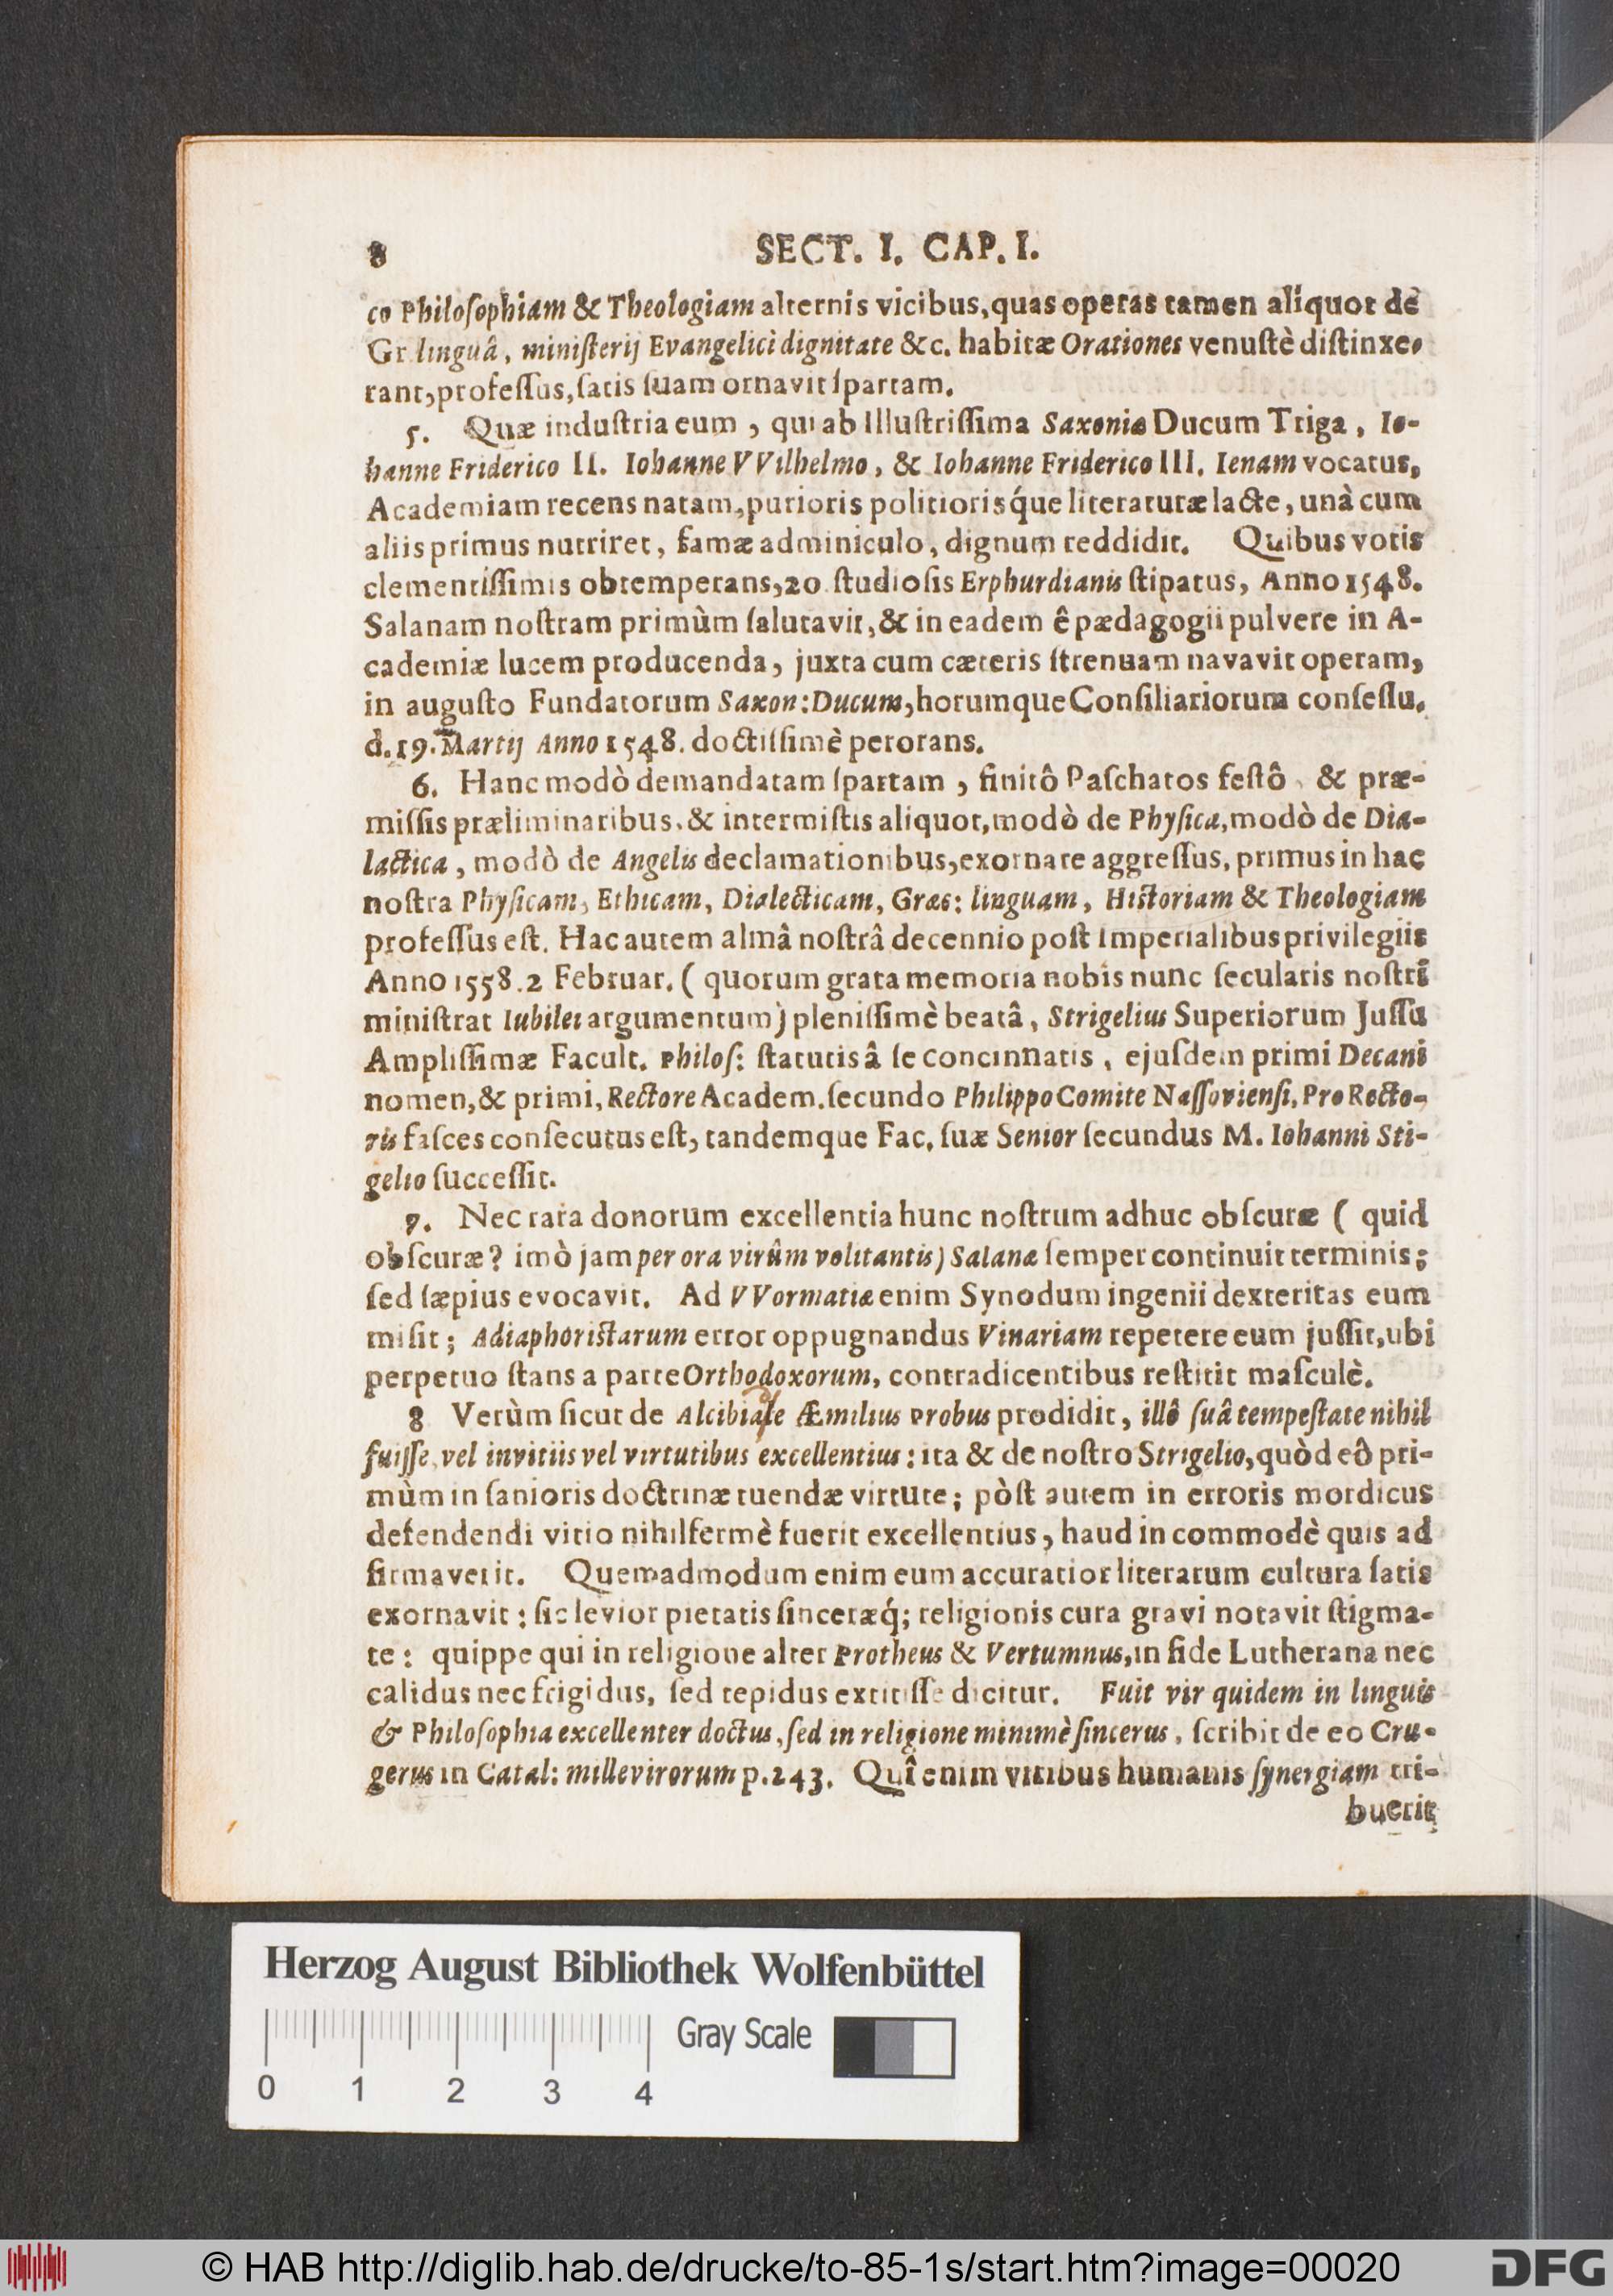 8 SECT. I. CAP. I.
co Philoſophiam & Theologiam alternis vicibus, quas operas tamen aliquot de
Gr. linguâ, miniſterij Evangelici dignitate &c. habitæ Orationes venuſtè diſtinxe-
rant, profeſſus, ſatis ſuam ornavit ſpartam.
5. Quæ induſtria eum, qui ab Illuſtriſſima Saxoniæ Ducum Triga, Io-
hanne Friderico II. Iohanne VVilhelmo, & Iohanne Friderico III. Ienam vocatus,
Academiam recens natam, purioris politiorisq́ue literaturæ lacte, unà cum
aliis primus nutriret, famæ adminiculo, dignum reddidit. Quibus votis
clementiſſimis obtemperans, 20. ſtudioſis Erphurdianis ſtipatus, Anno 1548.
Salanam noſtram primùm ſalutavit, & in eadem ê pædagogii pulvere in A-
cademiæ lucem producenda, juxta cum cæteris ſtrenuam navavit operam,
in auguſto Fundatorum Saxon: Ducum, horumque Conſiliariorum conſeſſu.
d. 19. Martij Anno 1548. doctiſſimè perorans.
6. Hanc modò demandatam ſpartam, finitô Paſchatos feſtô, & præ-
miſſis præliminaribus, & intermiſtis aliquot, modò de Phyſica, modò de Dia-
lactica, modò de Angelis declamationibus, exornare aggreſſus, primus in hac
noſtra Phyſicam, Ethicam, Dialecticam, Græc: linguam, Hiſtoriam & Theologiam
profeſſus eſt. Hac autem almâ noſtrâ decennio poſt Imperialibus privilegiis
Anno 1558. 2 Februar. (quorum grata memoria nobis nunc ſecularis noſtri
miniſtrat Iubilei argumentum) pleniſſimè beatâ, Strigelius Superiorum Juſſu
Ampliſſimæ Facult. Philoſ: ſtatutis â ſe concinnatis, ejuſdem primi Decani
nomen, & primi, Rectore Academ. ſecundo Philippo Comite Naſſovienſi, ProRecto-
ris faſces conſecutus eſt, tandemque Fac. ſuæ Senior ſecundus M. Iohanni Sti-
gelio ſucceſſit.
7. Nec rara donorum excellentia hunc noſtrum adhuc obſcuræ (quid
obſcuræ? imò jam per ora virûm volitantis) Salanæ ſemper continuit terminis;
ſed ſæpius evocavit. Ad VVormatiæ enim Synodum ingenii dexteritas eum
miſit; Adiaphoriſtarum error oppugnandus Vinariam repetere eum juſſit, ubi
perpetuo ſtans a parte Orthodoxorum, contradicentibus reſtitit maſculè.
8 Verùm ſicut de Alcibiade Æmilius Probus prodidit, illô ſuâ tempeſtate nihil
fuiſſe, vel in vitiis vel virtutibus excellentius: ita & de noſtro Strigelio, quòd eô pri-
mùm in ſanioris doctrinæ tuendæ virtute; pòſt autem in erroris mordicus
defendendi vitio nihil fermè fuerit excellentius, haud in commodè quis ad
firmaverit. Quemadmodum enim eum accuratior literarum cultura ſatis
exornavit: ſic levior pietatis ſinceræq́; religionis cura gravi notavit ſtigma-
te: quippe qui in religione alter Protheus & Vertumnus, in fide Lutherana nec
calidus nec frigidus, ſed tepidus extitiſſe dicitur. Fuit vir quidem in linguis
& Philoſophia excellenter doctus, ſed in religione minimè ſincerus, ſcribit de eo Cru-
gerus in Catal: millevirorum p. 243. Quî enim viribus humanis ſynergiam tri-
buerit
Herzog August Bibliothek Wolfenbüttel
Gray Scale
0 1 2 3 4
© HAB http://diglib.hab.de/drucke/to-85-1s/start.htm?image=00020
DFG